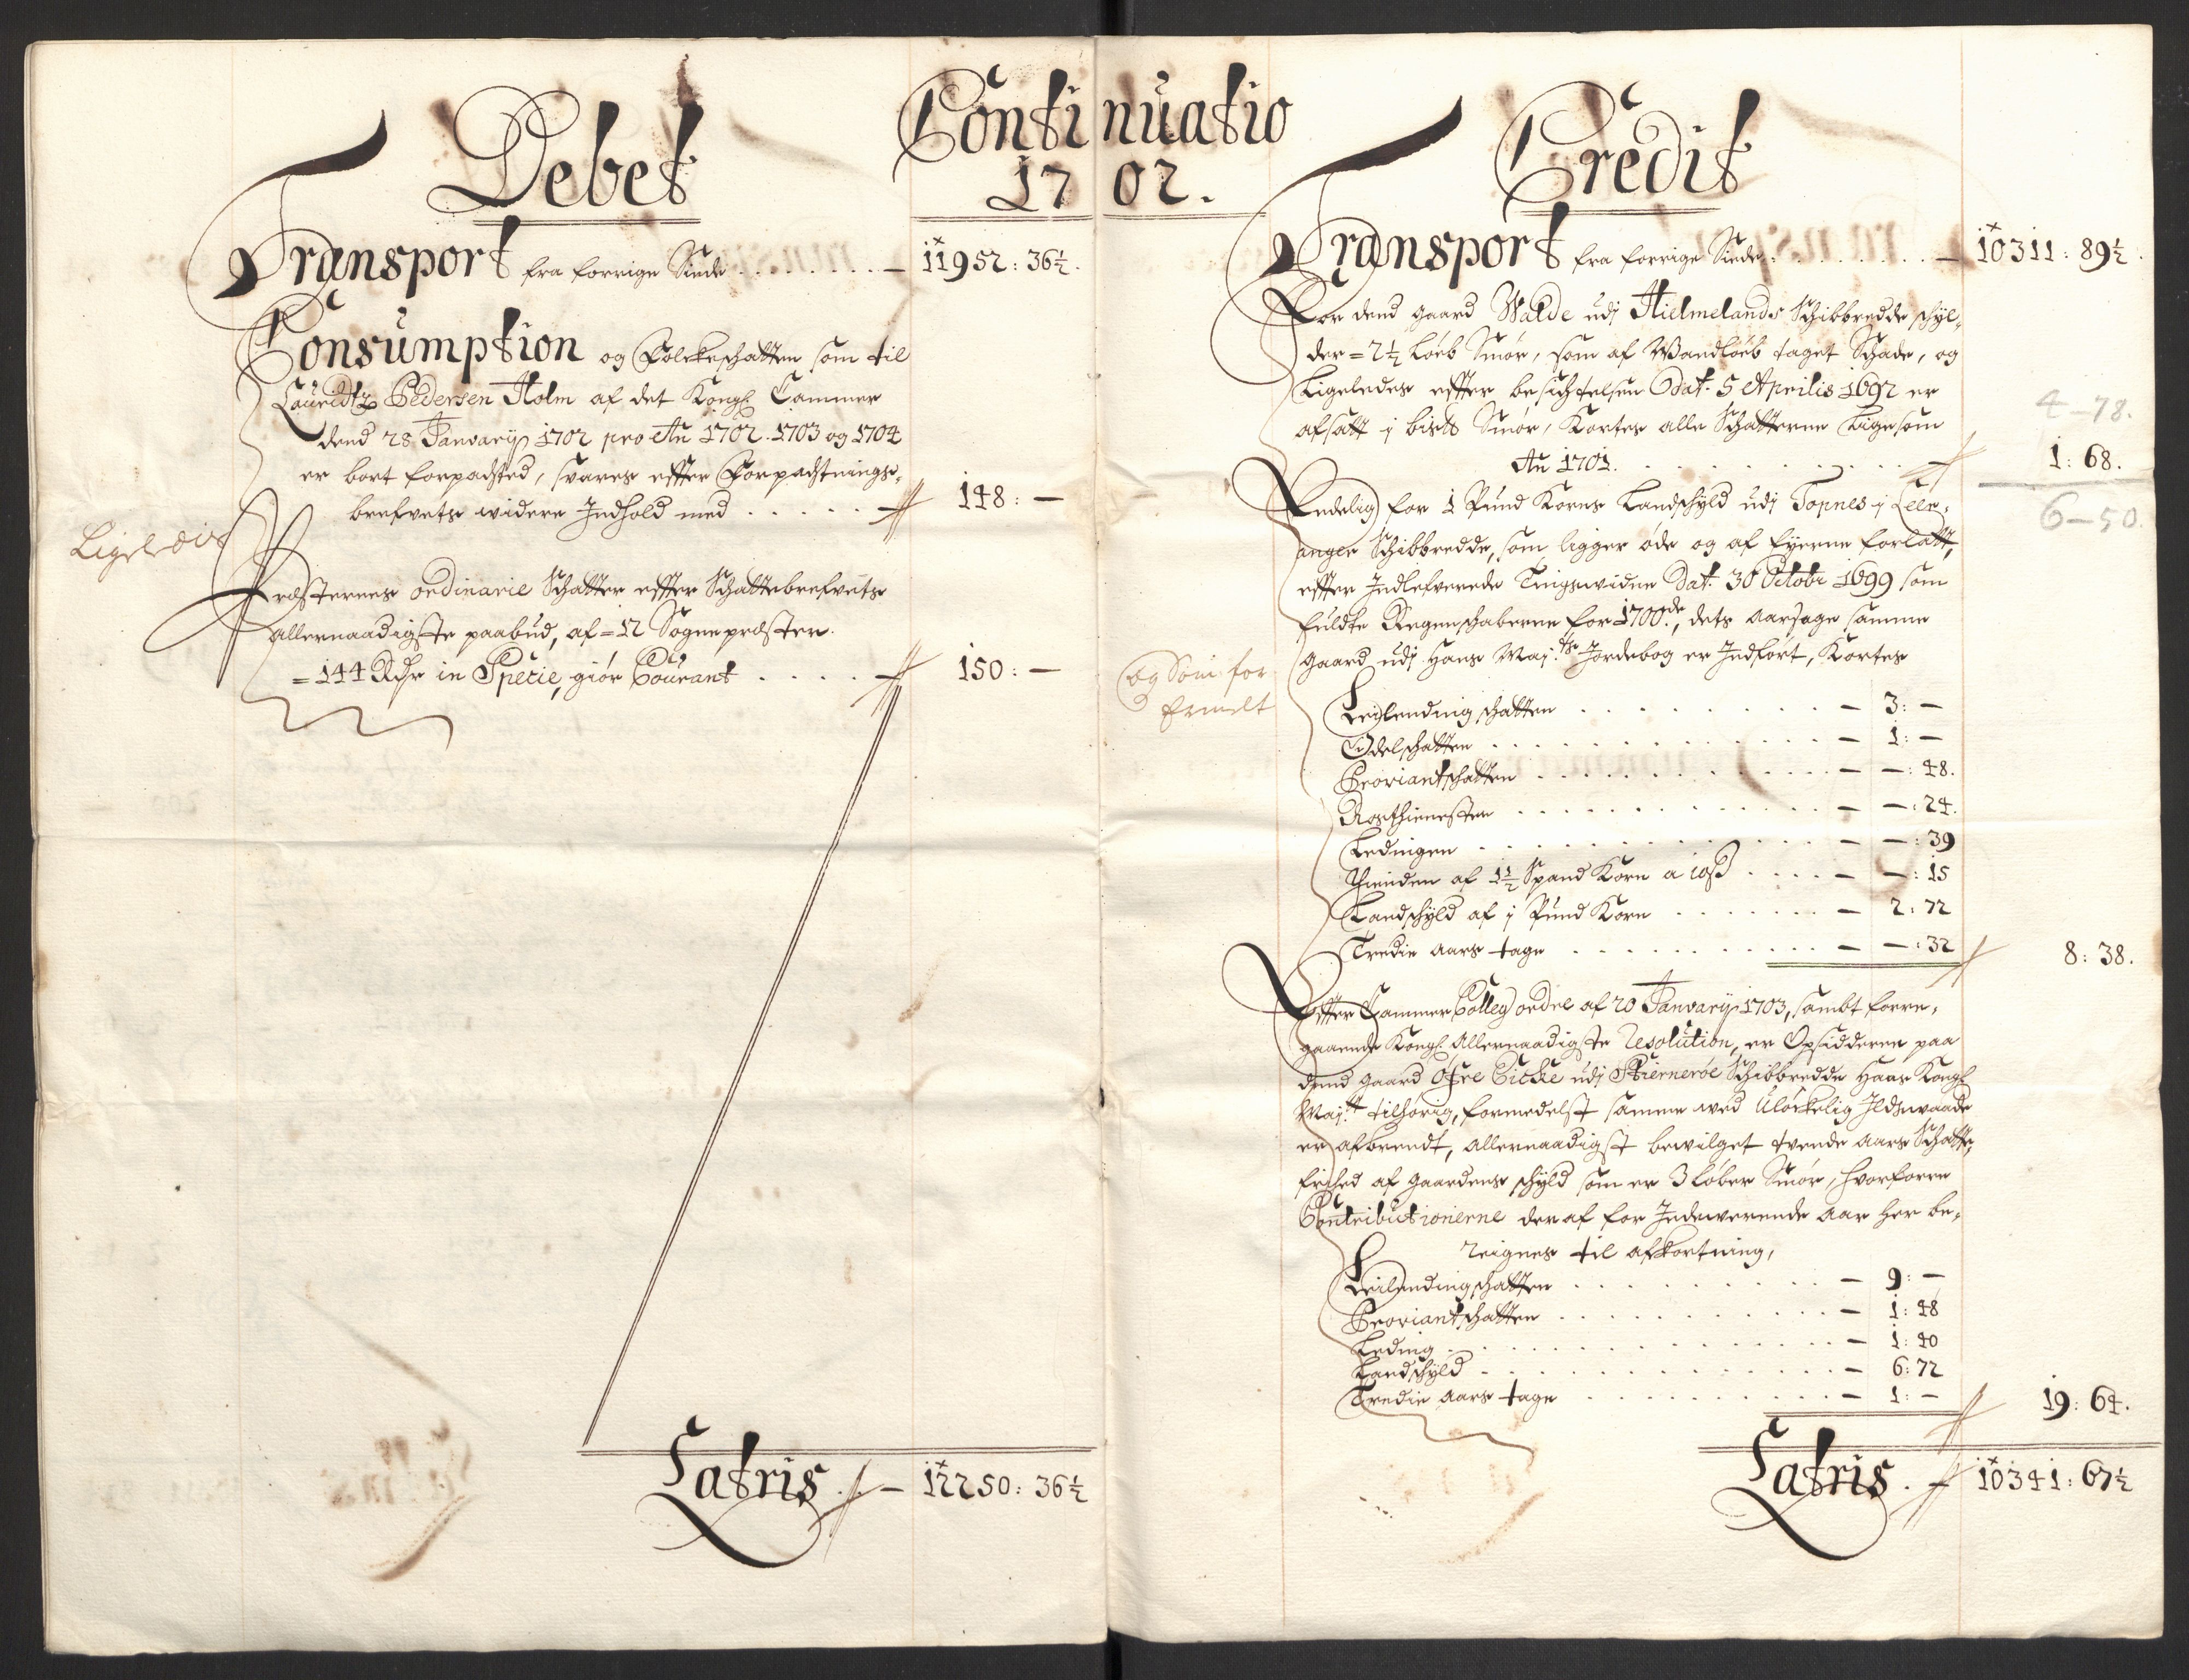 Continuatio
1702.
Debet
Transport fra forrige Siide . . . . . . . . — 11952: 36½.
Consumption og Folckeschatten som til
Lauridtz Pedersen Holm af det Kongl. Cammer
dend 28 Januarij 1702 pro Ao 1702. 1703 og 1704
er bort forpachted, svares effter Forpachtnings-
brefvets widere Indhold med . . . . . — 148: —
Ligeledis
Præsternes ordinarie Schatter effter Schattebrefvets
allernaadigste paabud, af = 12 Sogne præster.
= 144 Rdr in Specie, giør Courant . . . . — 150: —
Latris . — 12250: 36½
Credit
Transport fra forrige Siide . . . . . . . . — 10311: 89½.
For dend gaard Walde udj Hielmelands Schibbredde schyl-
der = 2½ Løeb Smør, som af Wandløeb taget Schade, og
Ligeledes effter besichtelsen Dat. 5 Aprilis 1692 er
afsatt j bixt Smør, Kortes alle Schatterne Ligesom
4—78.
Ao 1701. . . . . . . . . . — 1: 68.
6—50.
Endelig for 1 Pund Korns Landschyld udj Topnes j Leer-
anger Schibbredde, som ligger øde og af Eyerne forlatt,
effter Indlefverede Tingswidne Dat. 30 Octobr 1699 som
fuldte Regenschaberne for 1700de, dets aarsage samme
gaard udj Hans Maj.ts Jordebog er Indført, Kortes
og Som for
Ermelt
Leylending schatten . . . . . . . . . — 3: —
Odelschatten . . . . . . . . . . . — 1: —
Proviantschatten . . . . . . . . . . — —: 48.
Rosthienesten . . . . . . . . . . — —: 24.
Ledingen . . . . . . . . . . . — —: 39
Thienden af 1½ Spand Korn a 10ß . . . . — —: 15
Landschyld af j Pund Korn . . . . . . — 2: 72
Tredie aars tage . . . . . . . . . — —: 32 8: 38.
Effter Cammer Colleg ordre af 20 Januarij 1703, sambt forre-
gaaende Kongl. Allernaadigste Resolution, er Opsidderen paa
dend gaard Øfre Eicke udj Skiernerøe Schibbredde Hans Kongl
Maj.tt tilhørig, formedelst samme wed Uløckelig Ildswaade
er afbrendt, allernaadigst bewilget tvende aars Schatte-
frihed af gaardens schyld som er 3 Løber Smør, hvorforre
Contributionerne der af for Indewerende aar her be-
reignes til afkortning,
Leilendingschatten . . . . . . . . . — 9: —
Proviantschatten . . . . . . . . . — 1: 48
Leding . . . . . . . . . . . . — 1: 40
Landschyld . . . . . . . . . . . — 6: 72
Tredie aars tage . . . . . . . . — 1: — 19: 64.
Latris . — 10341: 67½